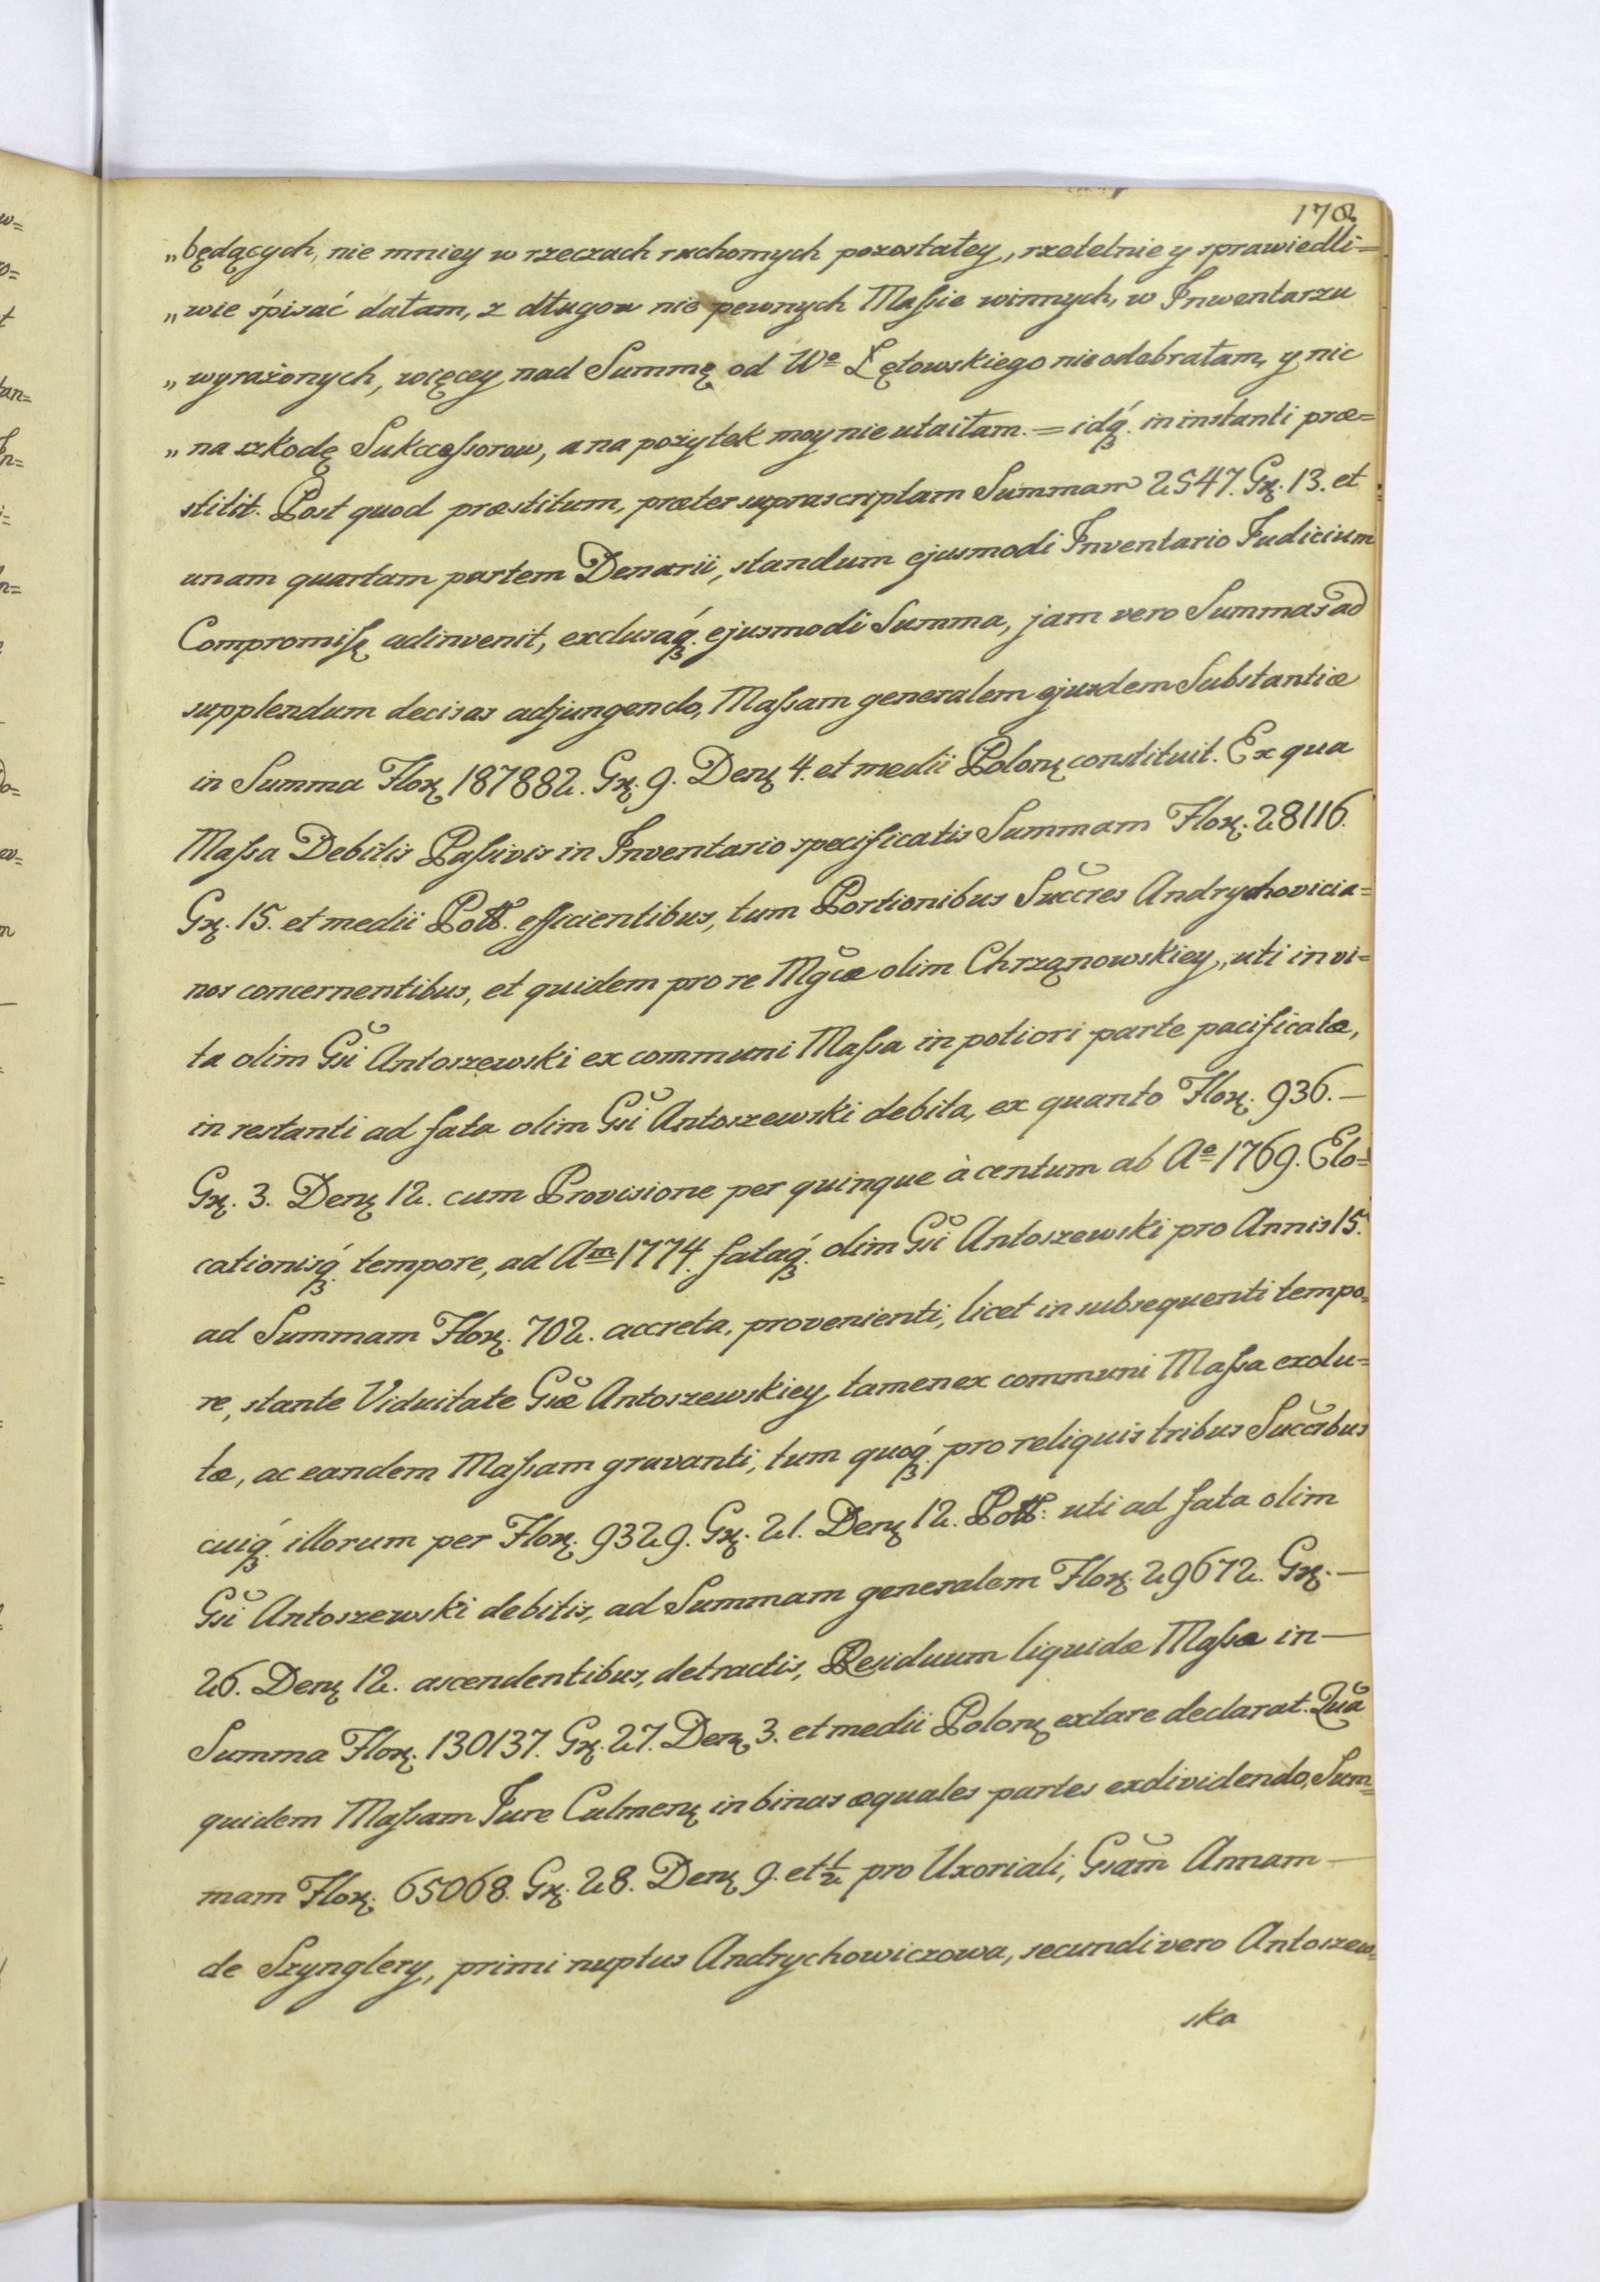 178
„będących, nie mniey w rzeczach ruchomych pozostałey, rzetelnie y sprawiedli=
„wie śpisać dałam, z długow nie pewnych Massie winnych, w Inwentarzu
„wyrażonych, więcey nad Summę od Wo Łętowskiego nie odebrałam, y nic
„na szkodę Sukccessorow, a na pożytek moy nie utaiłam. = idq́. in instanti præ=
stitit. Post quod præstitum, præter suprascriptam Summam 2547. Gr. 13. et
unam quartam partem Denarii, standum ejusmodi Inventario Judicium
Compromiss adinvenit, exclusáq́. ejusmodi Summa, jam vero Summas ad
supplendum decisas adjungendo, Massam generalem ejusdem Substantiæ
in Summa Flor. 187882. Gr. 9. Den. 4. et medii Polon. constituit. Ex qua
Massa Debitis Passivis in Inventario specificatis Summam Flor. 28116.
Gr. 15. et medii Poll. efficientibus, tum Portionibus Succres Andrychovicia=
nos concernentibus, et quidem pro re Mgcæ olim Chrząnowskiey, uti in vi=
ta olim Gsi Antoszewski ex communi Massa in potiori parte pacificatæ,
in restanti ad fata olim Gsi Antoszewski debita, ex quanto Flor. 936. —
Gr. 3. Den. 12. cum Provisione per quinque à centum ab Ao 1769. Elo=
cationisq́. tempore, ad Am 1774. fataq́. olim Gsi Antoszewski pro Annis 15.
ad Summam Flor. 702. accreta, provenienti, licet in subsequenti tempo=
re, stante Viduitate Gsæ Antoszewskiey, tamen ex communi Massa exolu=
tæ, ac eandem Massam gravanti, tum quoq́. pro reliquis tribus Succribus
cuiq́. illorum per Flor. 9329. Gr. 21. Den. 12. Poll. uti ad fata olim
Gsi Antoszewski debitis, ad Summam generalem Flor. 29672. Gr. —
26. Den. 12. ascendentibus, detractis, Residuum liquidæ Massæ in —
Summa Flor. 130137. Gr. 27. Den. 3. et medii Polon. extare declarat. Quā
quidem Massam Jure Culmen. in binas æquales partes exdividendo, Sum=
mam Flor. 65068. Gr. 28. Den. 9. et 1/2 pro Uxoriali, Gsam Annam —
de Szynglery, primi nuptus Andrychowiczowa, secundi vero Antoszew=
ska